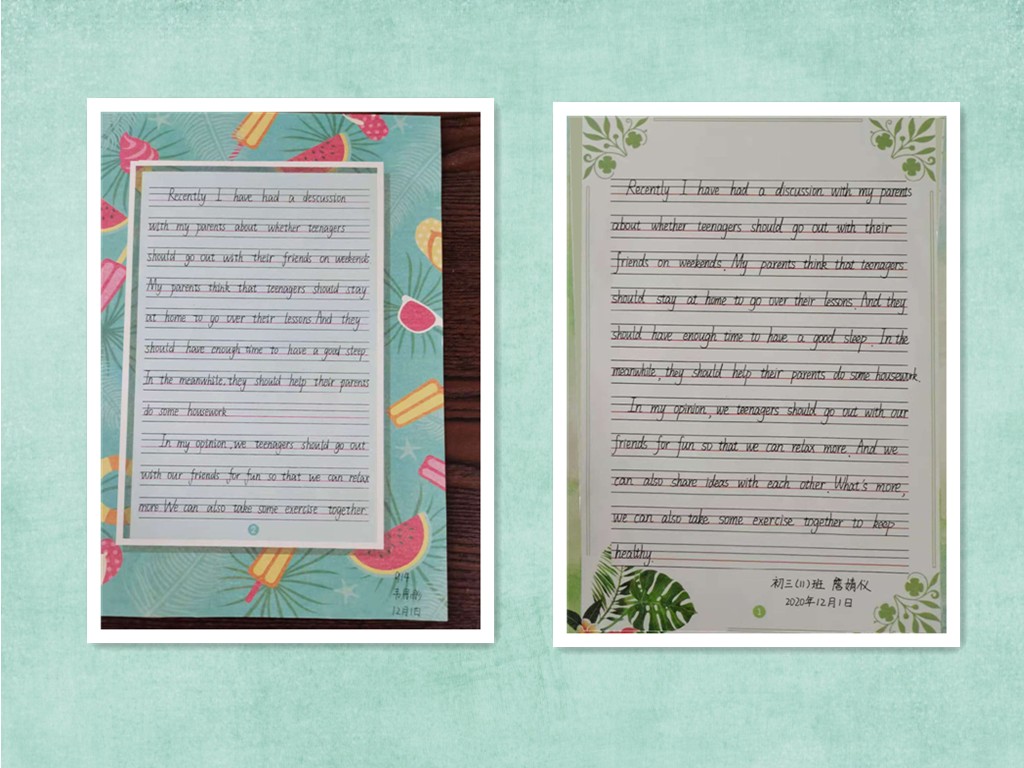 Recently I have had a descussion
with my parents about whether teenagers
should go out with their friends on weekends
My parents think that teenagers should stay
at home to go over their lessons.And they
should have enough time to have a good sleep.
In the meanwhile,they should help their parents
do some housework
In my opinion,we teenagers should go out
with our friends for fun so that we can relax
more.We can also take some exercise together.
2
12月1日
Recently I have had a discussion with my parents
about whether teenagers should go out with their
friends on weekends. My parents think that teenagers
should stay at home to go over their lessons. And they
should have enough time to have a good sleep. In the
meanwhile, they should help their parents do some housework.
In my opinion, we teenagers should go out with our
friends for fun so that we can relax more. And we
can also share ideas with each other. What's more,
we can also take some exercise together to keep
healthy.
初三(11)班 詹婧仪
2020年12月1日
1